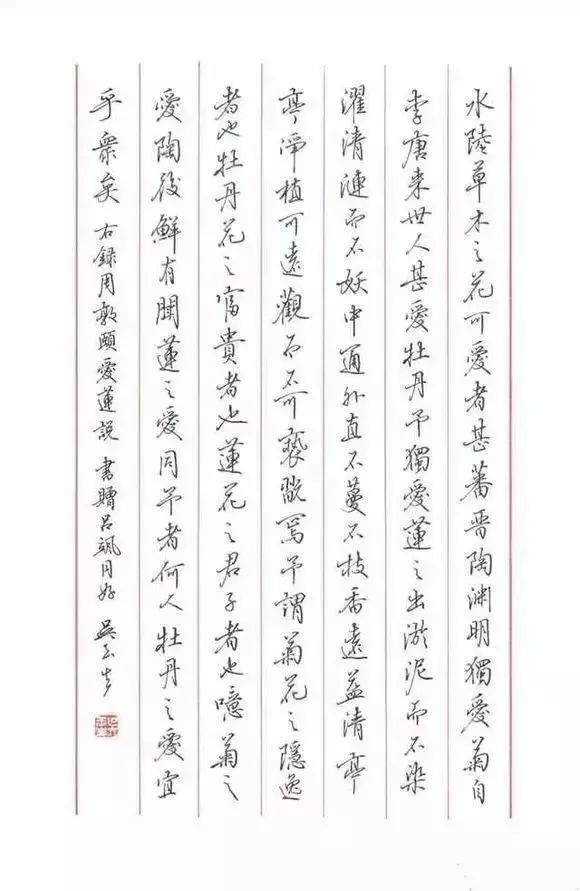 水陸草木之花可愛者甚蕃晉陶淵明獨愛菊自
李唐来世人甚愛牡丹予獨愛蓮之出淤泥而不染
濯清漣而不妖中通外直不蔓不枝香遠益清亭
亭淨植可遠觀而不可褻翫焉予謂菊花之隱逸
者也牡丹花之富貴者也蓮花之君子者也噫菊之
愛陶後鮮有聞蓮之愛同予者何人牡丹之愛宜
乎衆矣 右録周敦頤愛蓮説 書贈呂颯同好 吴玉生